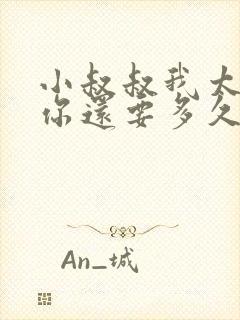 小叔叔我太
你還要多久
An_城